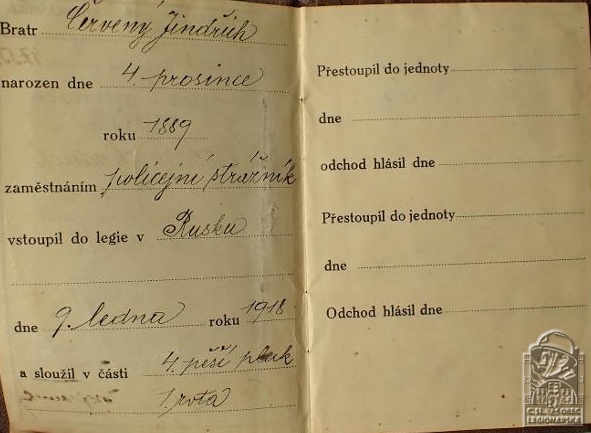 Bratr Červený Jindřich
narozen dne 4. prosince
roku 1889
zaměstnáním policejní strážník
vstoupil do legie v Rusku
dne 9. ledna roku 1918
a sloužil v části 4. pěší pluk
1. rota
Přestoupil do jednoty
dne
odchod hlásil dne
Přestoupil do jednoty
dne
Odchod hlásil dne
ČSL. OBEC
LEGIONÁŘSKÁ